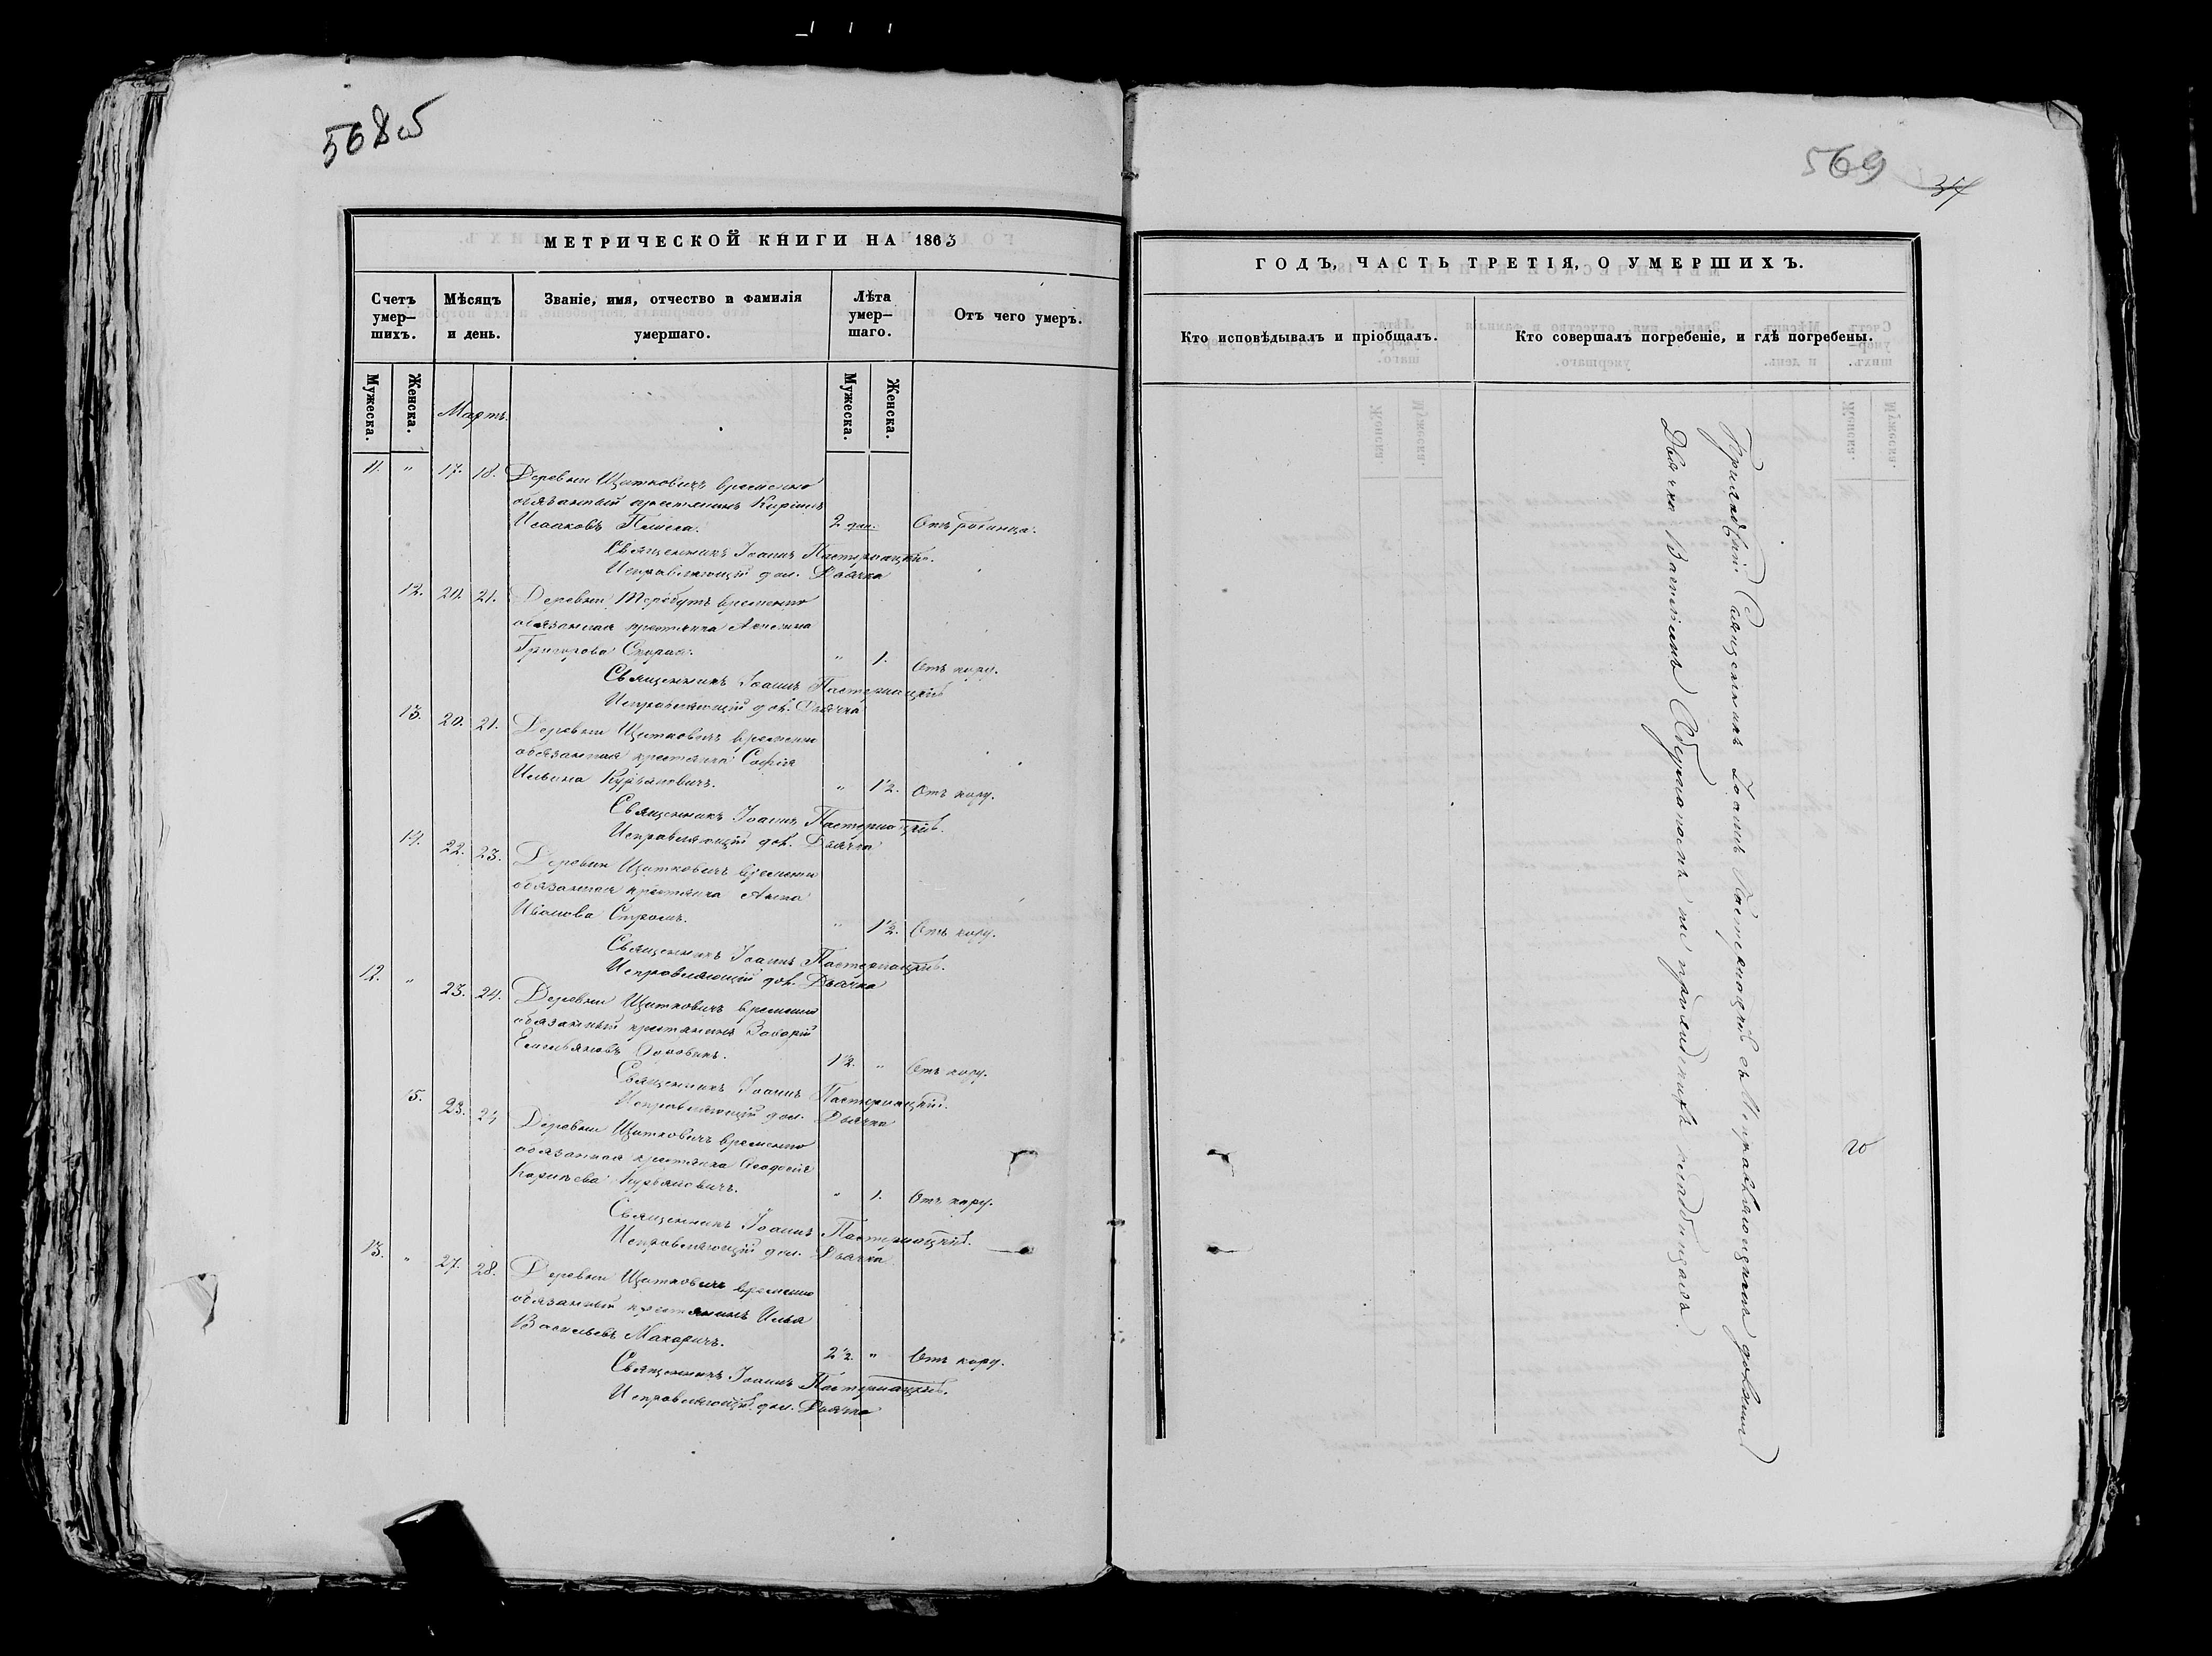 568 об
МЕТРИЧЕСКОЙ КНИГИ НА 1863
Счетъ умер–шихъ.
Мѣсяцъ и день.
Званіе, имя, отчество и фамилія умершаго.
Лѣта умер–шаго.
Отъ чего умеръ.
Мужеска.
Женска.
Мартъ.
Мужеска.
Женска.
11. " 17. 18. Деревни Щитковичъ временно
обязанный крестьянинъ
Исааковъ
2 дни. Отъ родимца.
Священникъ Іоаннъ Пастернацкій.
Исправляющій дол. Дьячка
12. 20. 21. Деревни Теребутъ временно
обязанная крестьянка
Григорова
" 1. Отъ кору.
Священникъ Іоаннъ Пастернацкій
Исправляющій дол. Дьячка
13. 20. 21. Деревни Щитковичъ временно
обязанная крестьянка Софія
Ильина Курьяновичъ.
" 1½. Отъ кору.
Священникъ Іоаннъ Пастернацкій.
Исправляющій дол. Дьячка
14. 22. 23. Деревни Щитковичъ временно
обязанная крестьянка Анна
Иванова
" 1½. Отъ кору.
Священникъ Іоаннъ Пастернацкій.
Исправляющій дол. Дьячка
12. " 23. 24. Деревни Щитковичъ временно
обязанный крестьянинъ Захарій
Емельяновъ
1½. " Отъ кору.
Священникъ Іоаннъ Пастернацкій.
Исправляющій дол. Дьячка
15. 23. 24 Деревни Щитковичъ временно
обязанная крестьянка Ѳеодосія
Карпѣева Курьяновичъ.
" 1. Отъ кору.
Священникъ Іоаннъ Пастернацкій.
Исправляющій дол. Дьячка
13. " 27. 28. Деревни Щитковичъ временно
обязанный крестьянинъ Илья
Васильевъ Макаричъ.
2½. " Отъ кору.
Священникъ Іоаннъ Пастернацкій.
Исправляющій дол. Дьячка
569
ГОДЪ, ЧАСТЬ ТРЕТІЯ, О УМЕРШИХЪ.
Кто исповѣдывалъ и пріобщалъ.
Кто совершалъ погребеніе, и гдѣ погребены.
Священникъ Іоаннъ Пастернацкій съ Исправляющимъ должн
Дьячка Василіемъ на приходскомъ кладбищахъ.